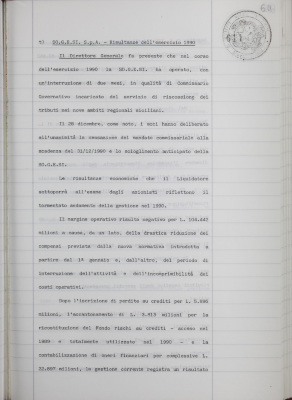 9) SO.G.E.SI. S.p.A. - Risultanze dell'esercizio 1990
Il Direttore Generale fa presente che nel corso
dell'esercizio 1990 la SO.G.E.SI. ha operato, con
un'interruzione di due mesi, in qualità di Commissario
Governativo incaricato del servizio di riscossione dei
tributi nei nove ambiti regionali siciliani.
Il 28 dicembre, come noto, i soci hanno deliberato
all'unanimità la cessazione del mandato commissariale alla
scadenza del 31/12/1990 e lo scioglimento anticipato della
SO.G.E.SI.
Le risultanze economiche che il Liquidatore
sottoporrà all'esame degli azionisti riflettono il
tormentato andamento della gestione nel 1990.
Il margine operativo risulta negativo per L.
milioni a causa, da un lato, della drastica riduzione dei
compensi prevista dalla nuova normativa introdotta a
partire dal 1° gennaio e, dall'altro, del periodo di
interruzione dell'attività e dell'incomprimibilità dei
costi operativi.
Dopo l'iscrizione di perdite su crediti per L.
milioni, l'accantonamento di L. milioni per la
ricostituzione del Fondo rischi su crediti - acceso nel
1989 e totalmente utilizzato nel 1990 - e la
contabilizzazione di oneri finanziari per complessive L.
milioni, la gestione corrente registra un risultato